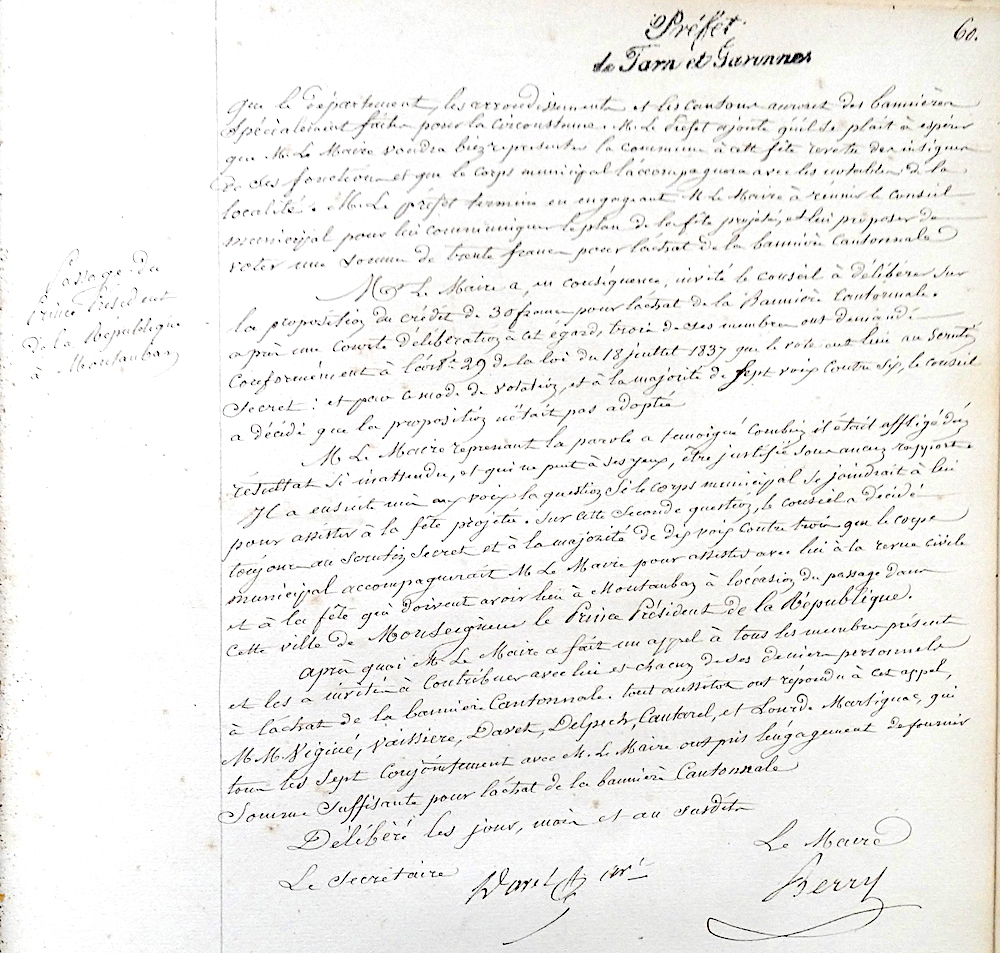 Préfet
de Tarn et Garonne
60.
Passage du
Prince Président
de la République
à Montauban
que le département, les arrondissements et les cantons auront des bannières
spécialement faites pour la circonstance. M. Le Préfet ajoute qu'il se plait à espérer
que M. Le Maire voudra bien représenter la commune à cette fête revetu des insignes
de ses fonctions et que le corps municipal l'accompagnera avec les notables de la
localité. M. Le préfet termine en engageant M. Le Maire à réunir le conseil
municipal pour lui communiquer le plan de la fête projetée, et lui proposer de
voter une somme de trente francs pour l'achat de la bannière Cantonnale
M. Le Maire a, en conséquence, invité le conseil à délibérer sur
la proposition du crédit de 30 francs pour l'achat de la Bannière Cantonnale.
après une courte délibération à cet égard, trois de ses membres ont demandé
conformément à l'art. 29 de la loi du 18 juillet 1837 que le vote eut lieu au scrutin
secret : et par ce mode de votation, et à la majorité de sept voix contre six, le conseil
a décidé que la proposition n'était pas adoptée
M. Le Maire reprenant la parole a temoigné combien il était affligé d'un
résultat si inattendu, et qui ne peut à ses yeux, être justifié sous aucun rapport.
Il a ensuite mis aux voix la question si le corps municipal se joindrait à lui
pour assister à la fête projetée. sur cette seconde question, le conseil a décidé
toujours au scrutin secret et à la majorité de dix voix contre trois que le corps
municipal accompagnerait M. Le Maire pour assister avec lui à la revue civile
et à la fête qui doivent avoir lieu à Montauban à l'occasion du passage dans
cette ville de Monseigneur le Prince Président de la République.
après quoi M. Le Maire a fait un appel à tous les membres présents
et les a invités à contribuer avec lui et chacun de ses deniers personnels
à l'achat de la bannière Cantonnale. tout aussitot ont répondu à cet appel,
M. M. Viginé, Vaissiere, Davet, Delpech, Cantarel, et Lourde Martignac, qui
tous les sept conjointement avec M. Le Maire ont pris l'engagement de fournir
somme suffisante pour l'achat de la bannière Cantonnale
Délibéré les jour, mois et an susdits
Le Maire
Le Secrétaire